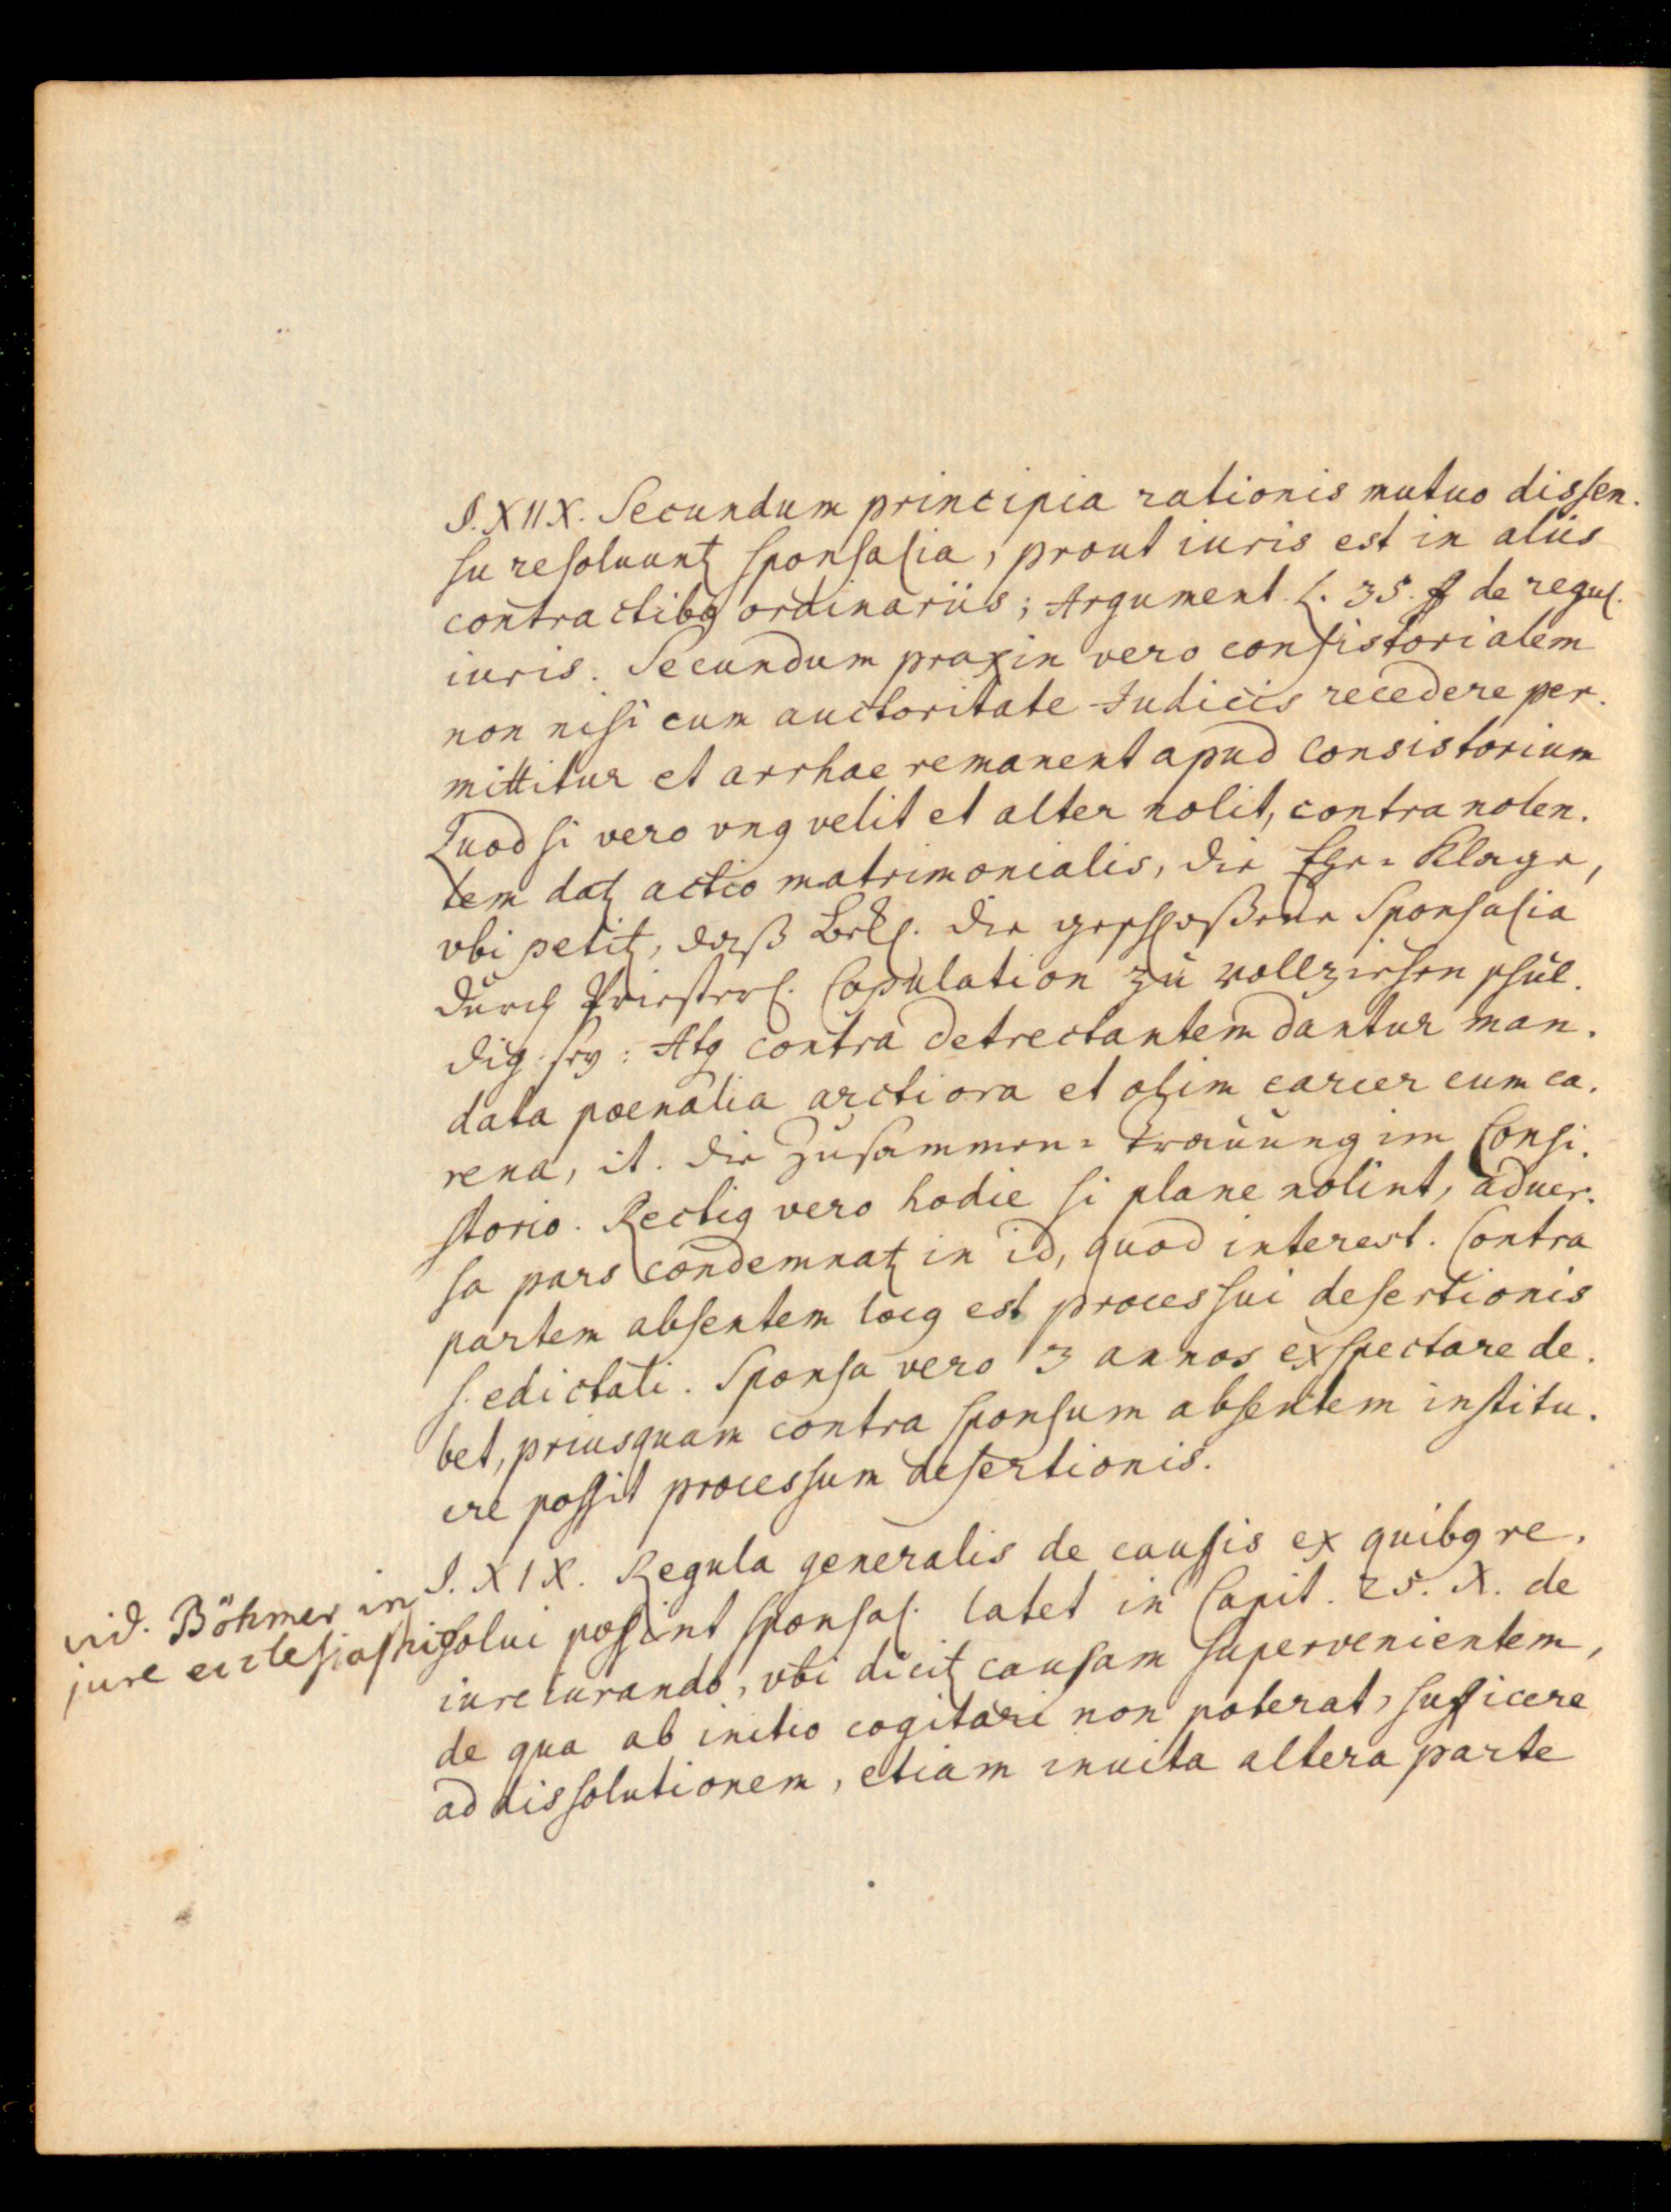 §. XIIX. Secundum principia rationis mutuo dissen-
su resoluuntʒ sponsalia, prout iuris est in aliis
contractibꝰ ordinariis; Argument. L. 35. ff de regul.
iuris. Secundum praxin vero consistorialem
non nisi cum auctoritate Judicis recedere per-
mittitur et arrhae remanent apud Consistorium
Quod si vero vnꝰ velit et alter nolit, contra nolen-
tem datʒ actio matrimonialis, die Ehe-Klage,
vbi petitʒ, daß Bekl. die geschloßene Sponsalia
durch Priesterl. Copulation zu vollziehen schul-
dig sey: Atq contra detrectantem dantur man-
data poenalia arctiora et olim carcer cum ca-
rena, it. die Zusammen-Trauung im Consi-
storio. Rectiꝰ vero hodie si plane nolint, aduer-
sa pars condemnatʒ in id, quod interest. Contra
partem absentem locꝰ est processui desertionis
s. edictali. Sponsa vero 3 annos exspectare de-
bet, priusquam contra sponsum absentem institu-
ere possit processum desertionis.
§. XIX. Regula generalis de causis ex quibꝰ re-
vid. Böhmer in
jure ecclesiasti
solui possint sponsal. latet in Capit. 25. X. de
iureiurando, vbi dicitʒ causam supervenientem,
de qua ab initio cogitari non poterat, sufficere
ad dissolutionem, etiam inuita altera parte